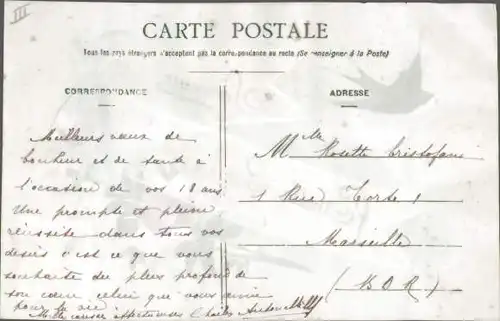 III
CARTE POSTALE
Tous les pays étrangers n'acceptent pas la correspondance au recto (Se renseigner à la Poste)
CORRESPONDANCE
ADRESSE
Meilleurs vœux de
bonheur et de santé à
l'occasion de vos 18 ans
Une prompte et pleine
réussite dans tous vos
désirs c'est ce que vous
souhaite du plus profond de
son cœur celui que vous
pour la vie
affectueuses Charles
Mlle Rosette Cristofani
1 Rue Torte 1
Marseille
(B. D. R)